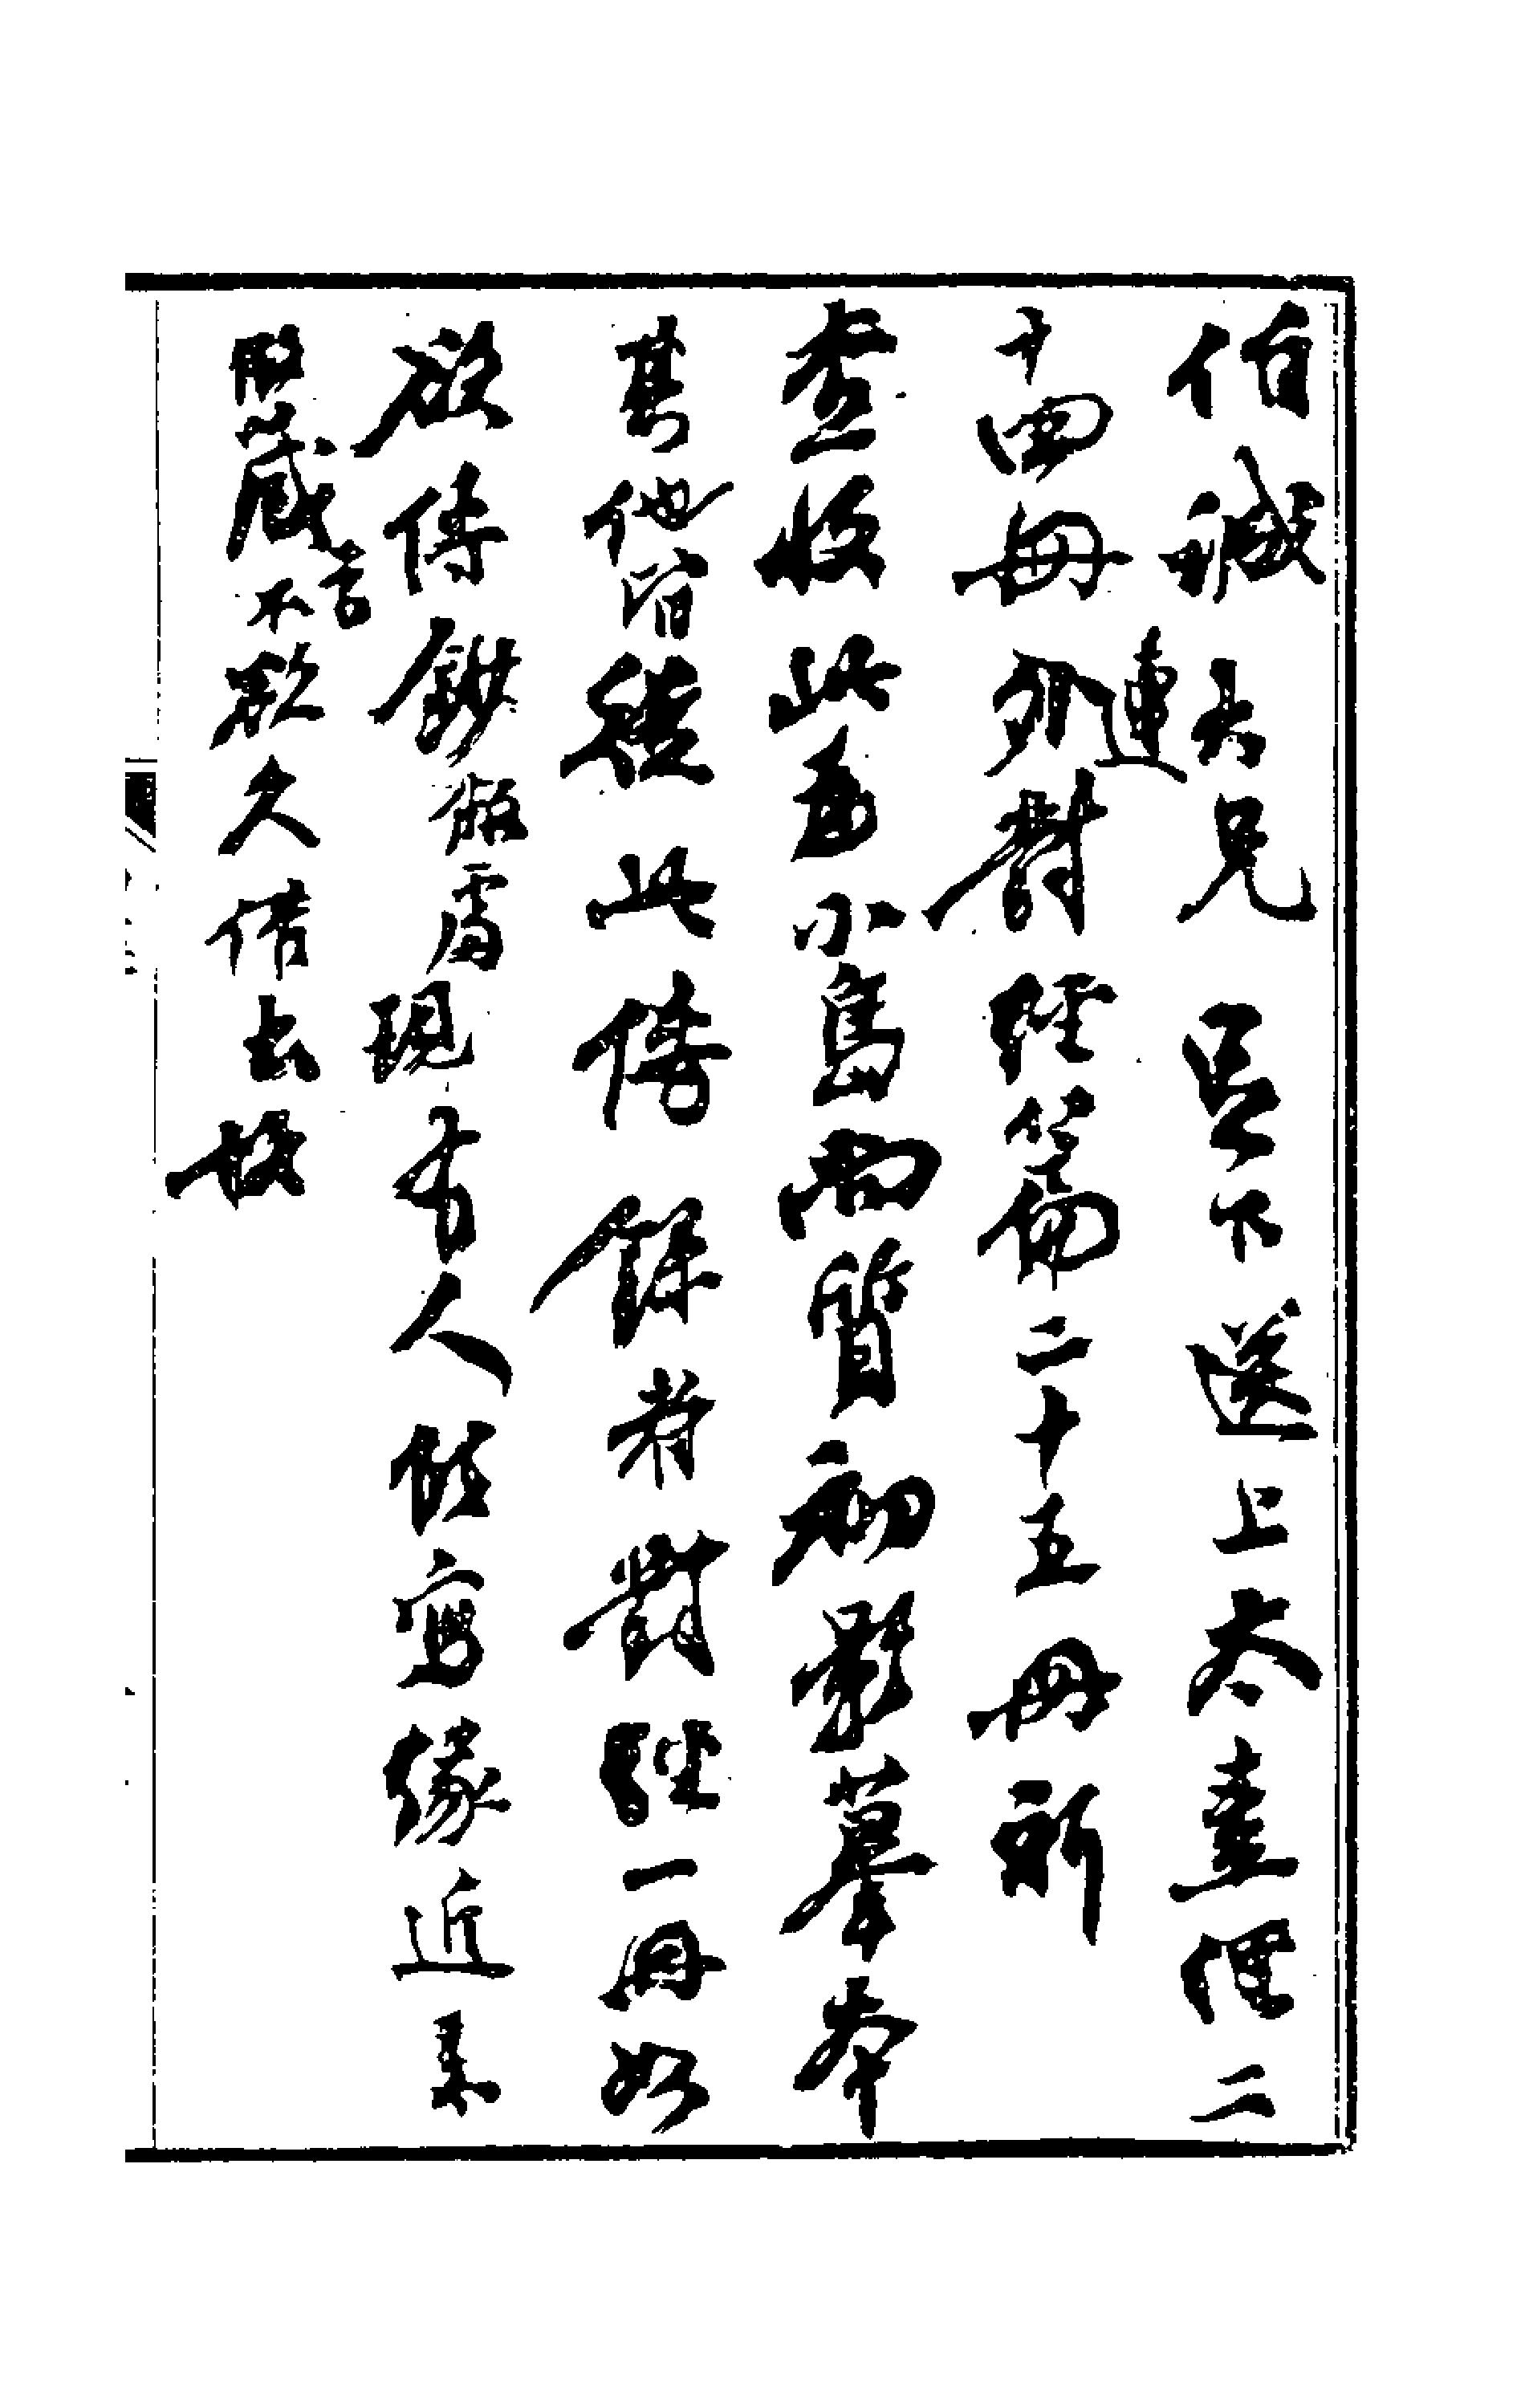 伯緘大兄足下送上太素僅二
十四冊連外對經篇二十五冊祈
查收此為小島尚質初影摹本
其他皆從此傳錄者對經一冊如
欲傳鈔敝處現有人能寫緣近來
所藏者不敢久借出故